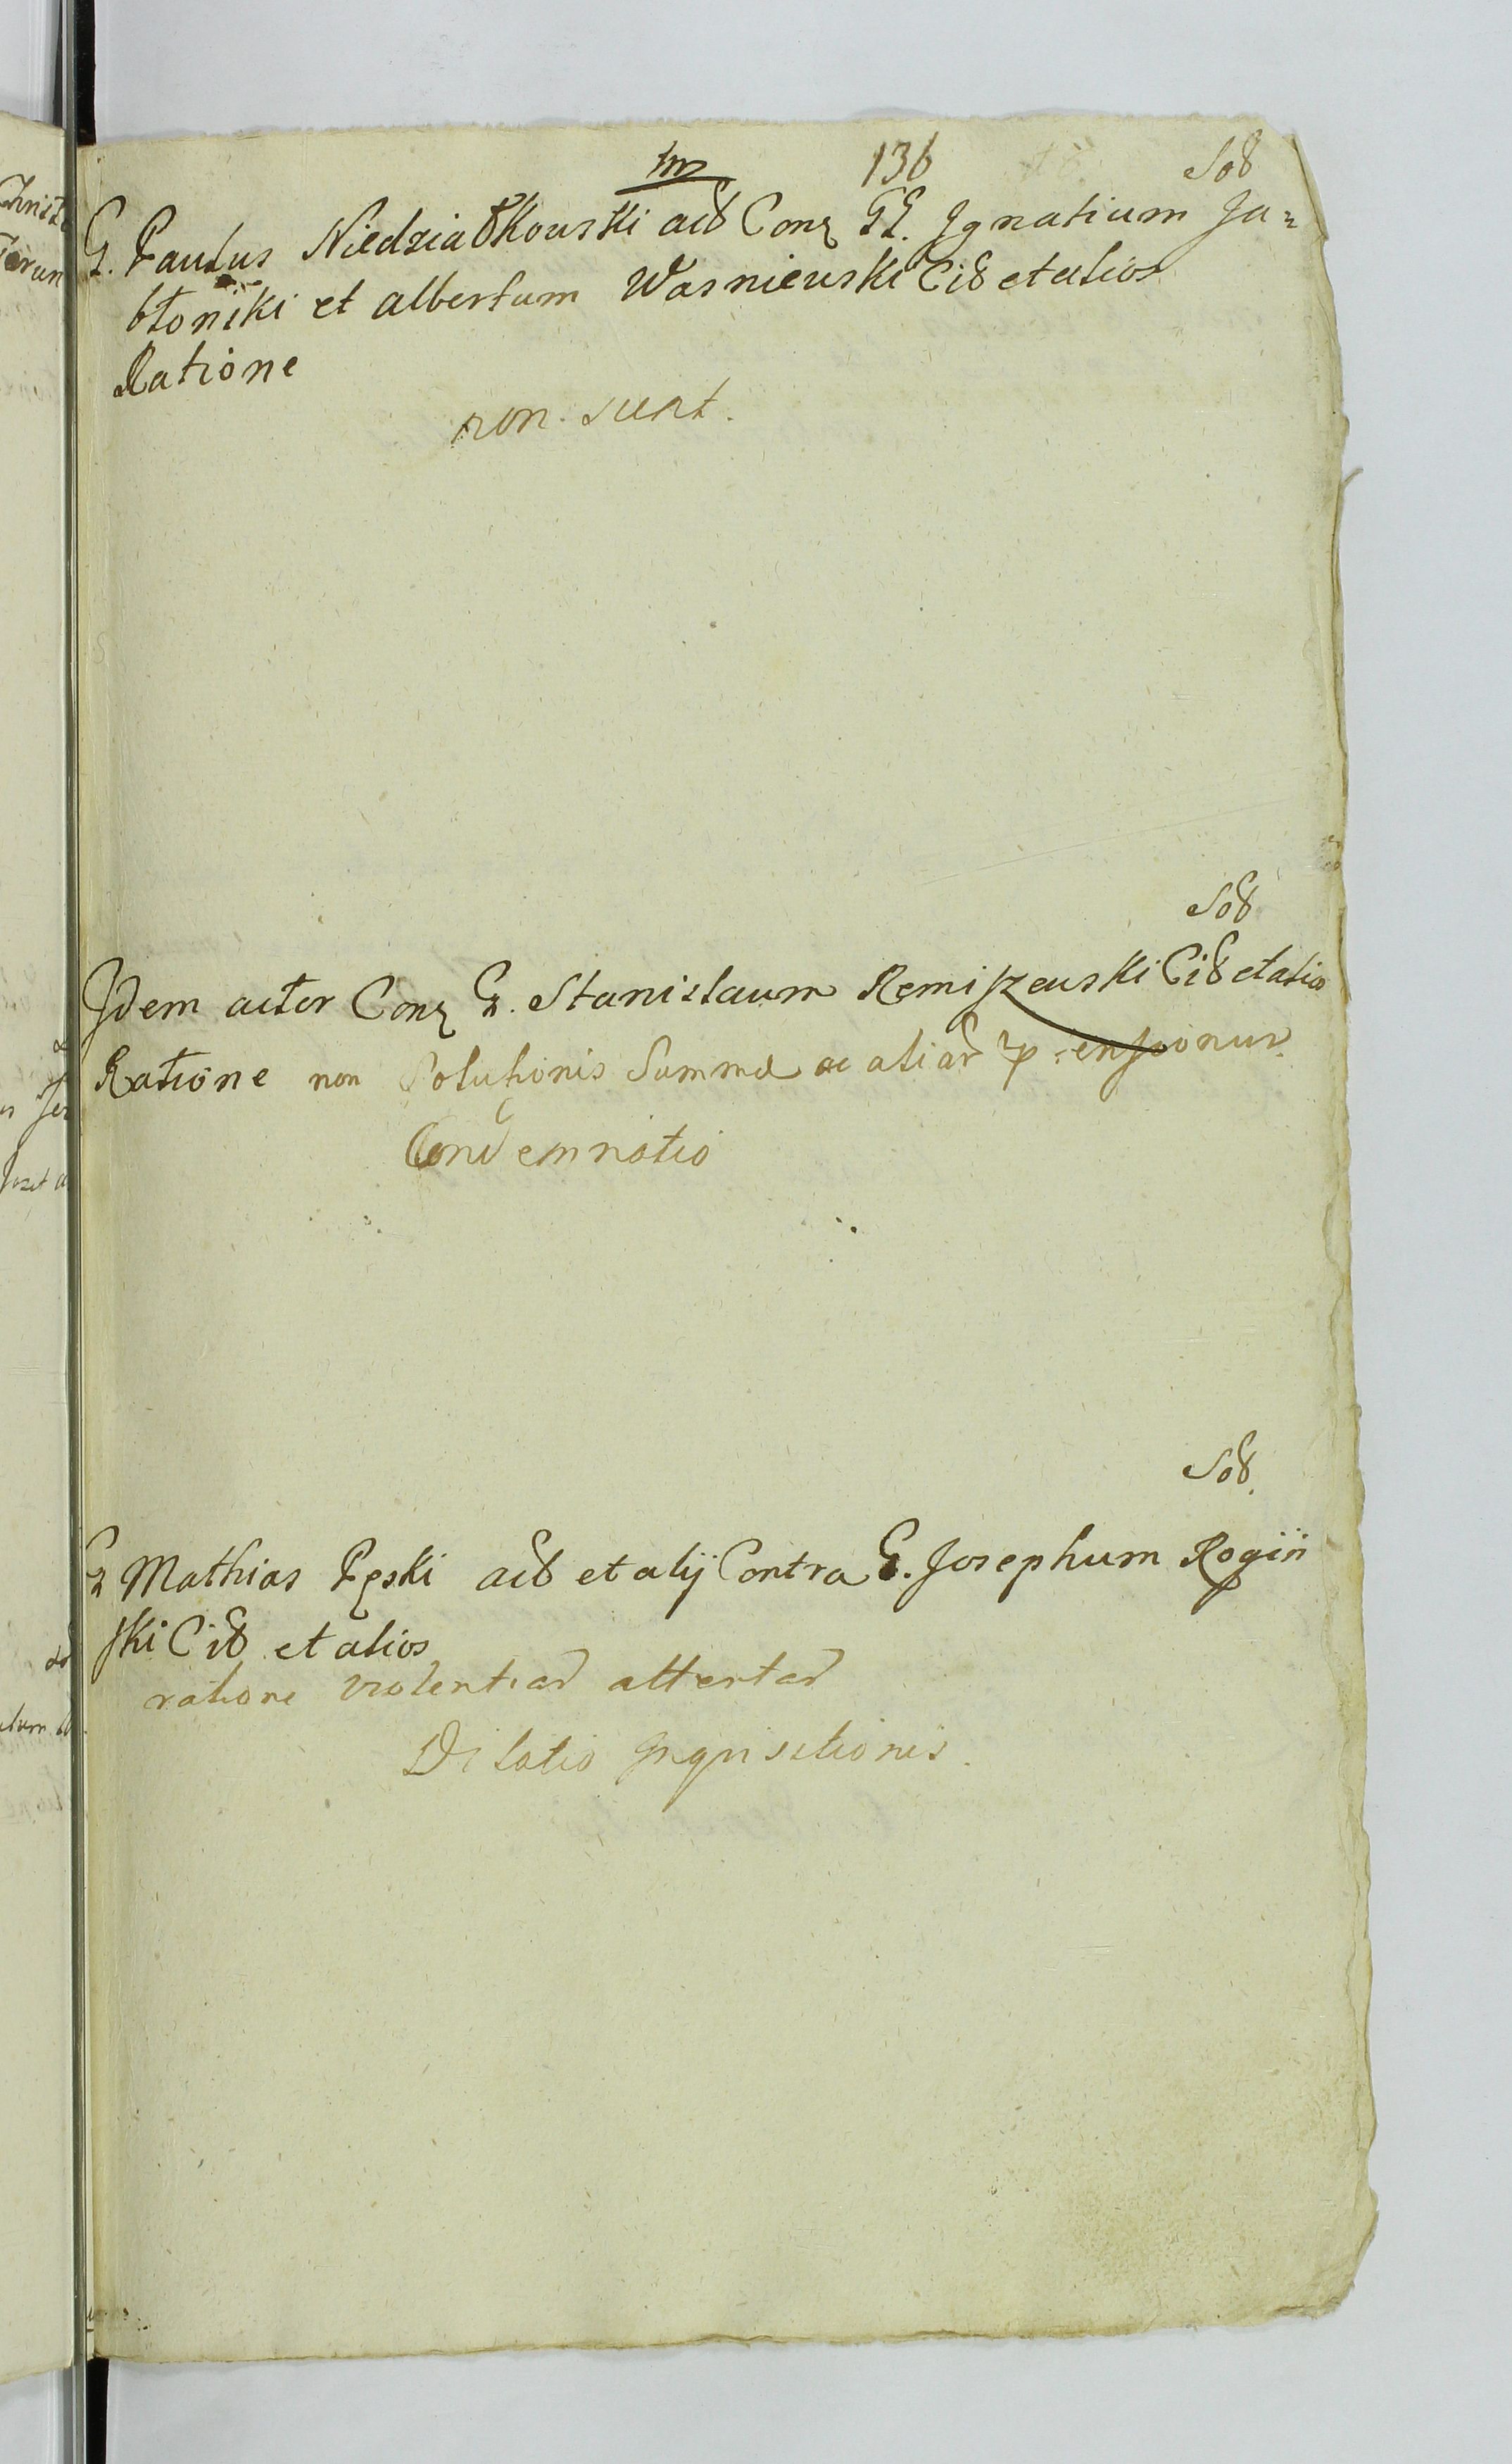 136
Sod
G. Paulus Niedziałkowski acd Con GG. Ignatium Ja=
błoński et albertum Wasniewski Cid et alios
Ratione
non sunt.
Sod
Idem actor Con G. Stanislaum Remiszewski Cid et alios
Ratione non Solutionis Summæ ac aliar
Condemnatio
Sod
G Mathias Pęski acd et alij Contra G. Josephum Rogiń
ski Cid et alios
ratione violentiar attentar
Dilatio Inquisitionis.